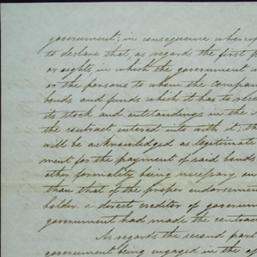 government; in consequence whereof
to declare that, as regards the first p
or rights, in which the government
or the persons to whom the compan
bonds and funds which it has to rece
its stock and outstandings in the
the contract entered into with it, th
will be acknowledged as legitimate
ment for the payment of said bonds
other formality being necessary
than that of the proper endorsemen
holder a direct creditor of governm
government had made the contrac
As regards the second part
government being engaged in the